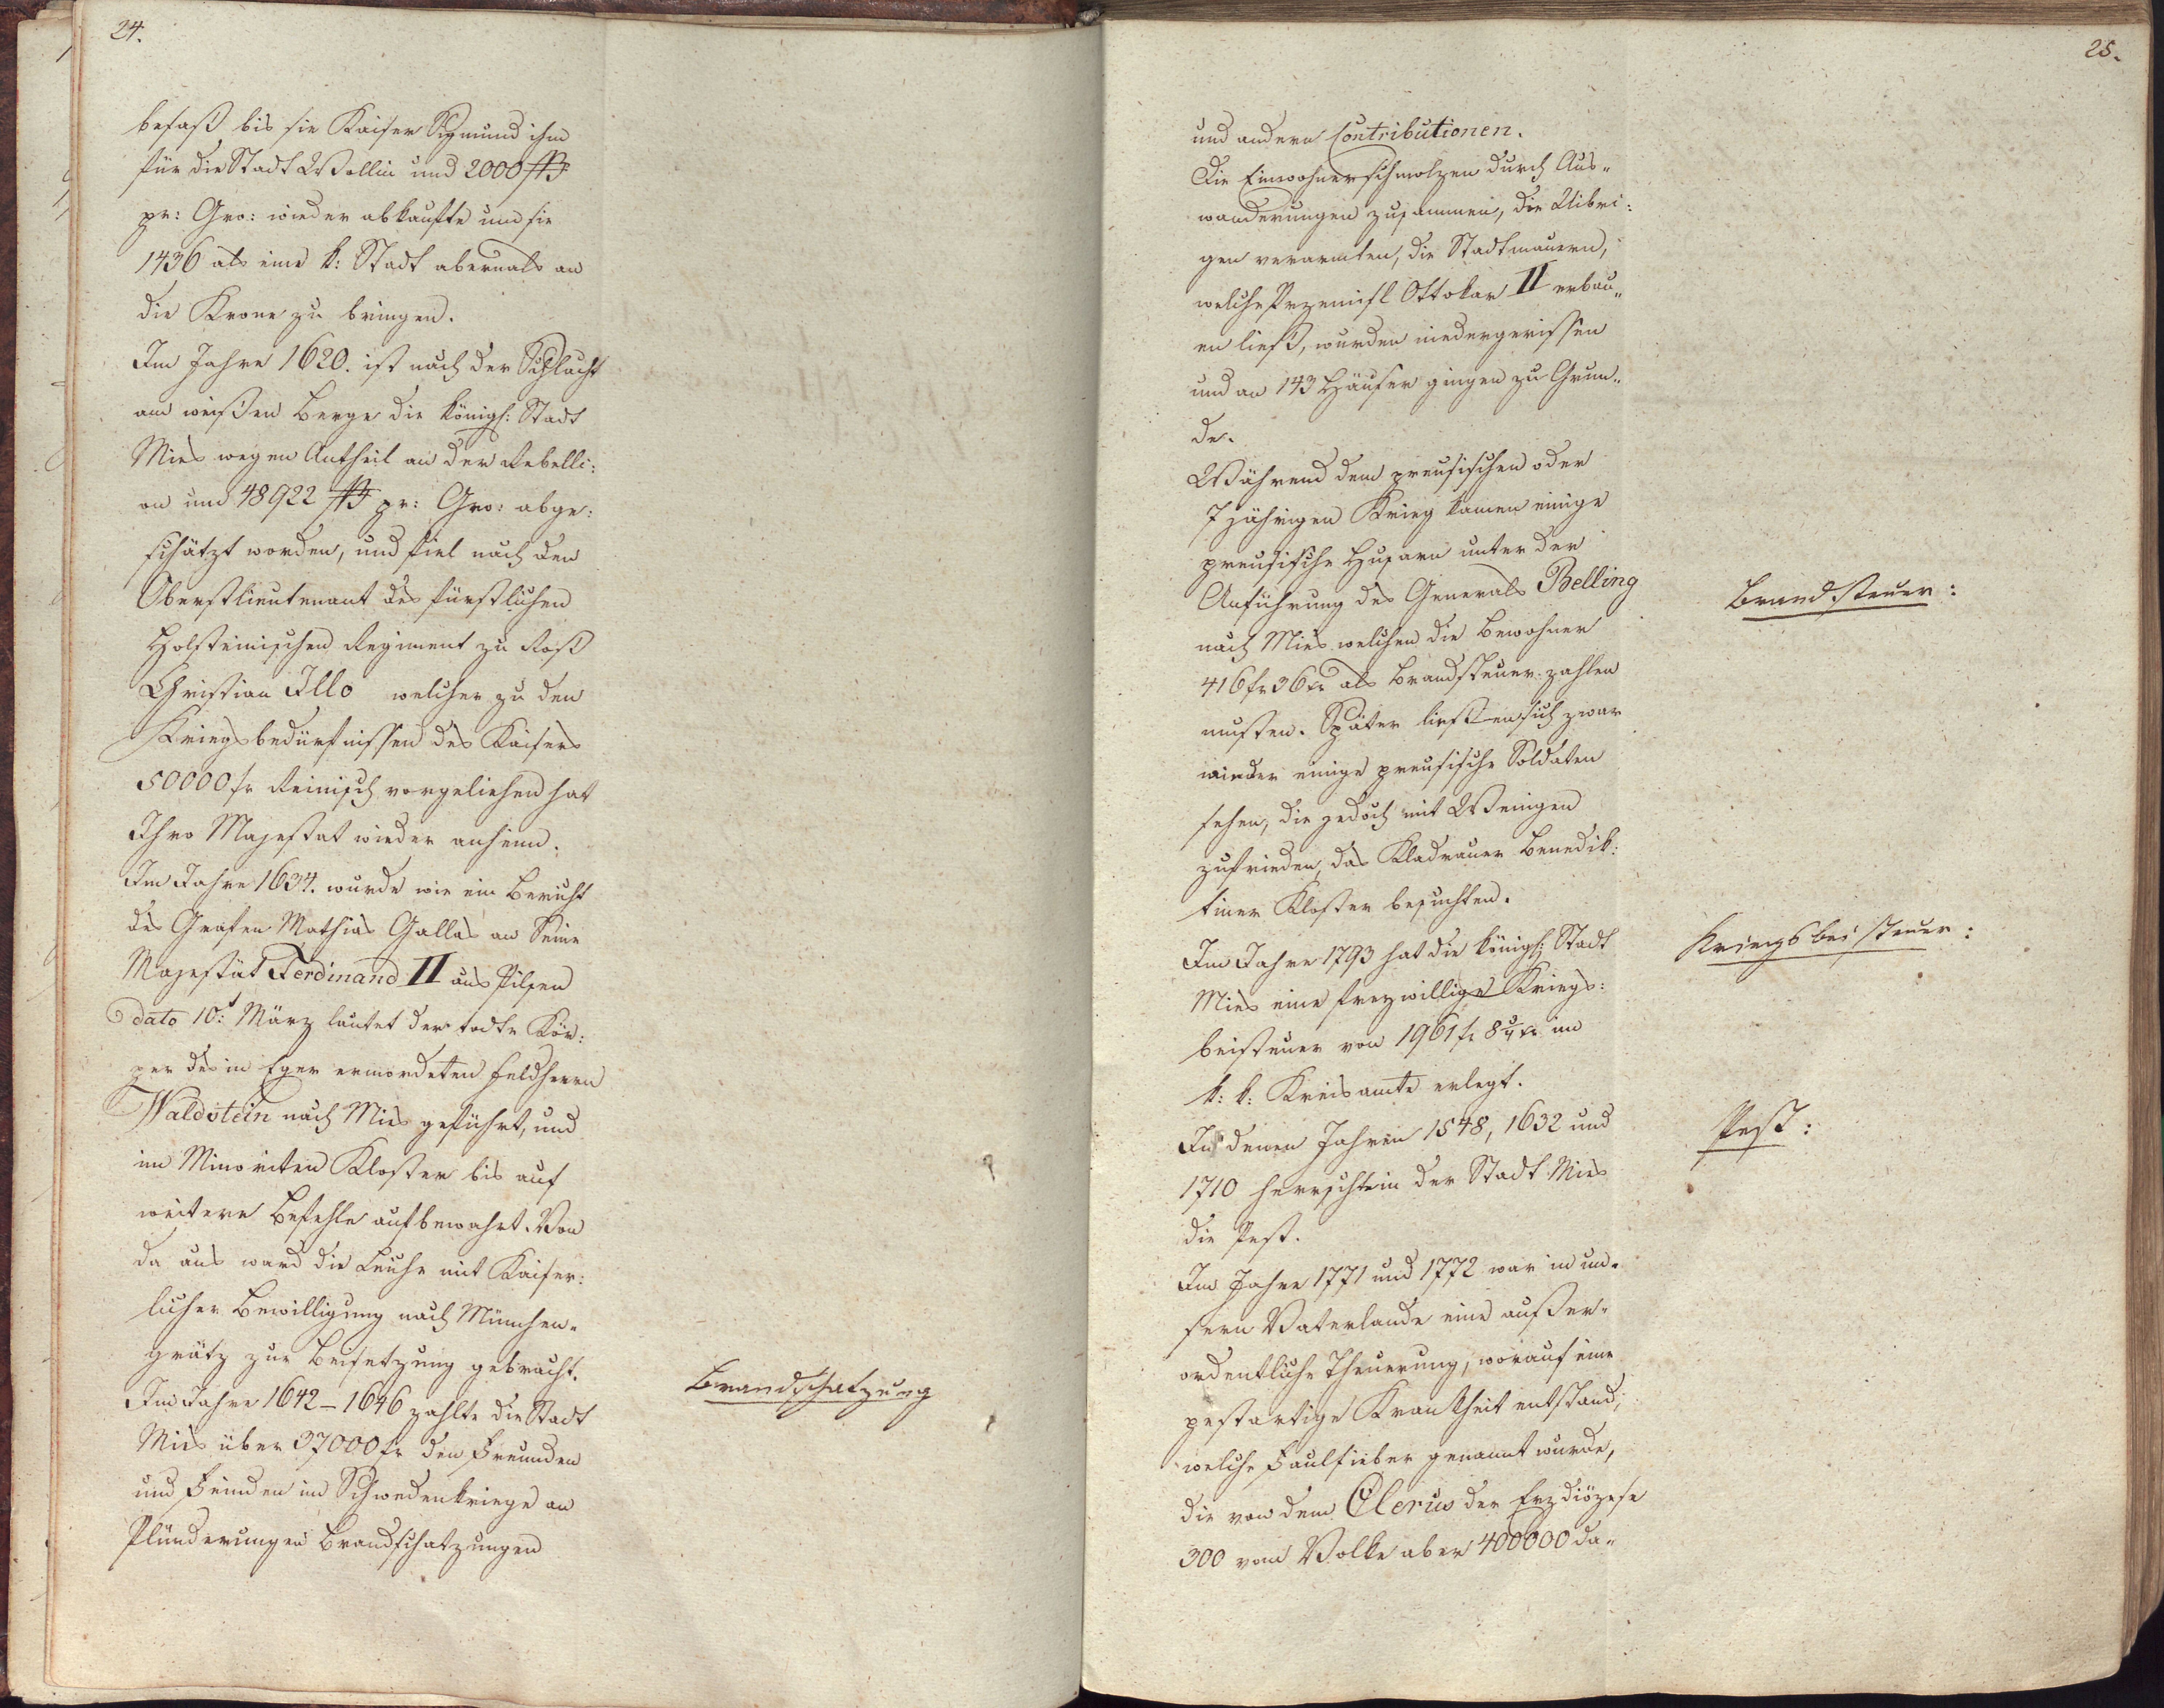 24.
besaß bis sie Kaiser Sigmund ihm
für die Stadt Wollin und 2000 ßß
pr: Gro: wieder abkaufte um sie
1436 als eine k: Stadt abermals an
die Krone zu bringen.
Im Jahre 1620. ist nach der Schlacht
am weißen Berge die königl: Stadt
Mies wegen Antheil an der Rebelli:
on um 48922 ßß pr: Gro: abge:
schätzt worden, und fiel nach dem
Oberstlieutenant des fürstlichen
Holsteinischen Regiment zu Roß
Christian Illo welcher zu den
Kriegsbedürfnissen des Kaisers
50000 fr Reinisch vorgeliehen hat
Ihro Majestat wieder anheim.
Im Jahre 1634. wurde wie ein Bericht
des Grafen Mathias Gallas an Seine
Majestät Ferdinand II aus Pilsen
dato 10t März lautet der todte Kör:
per des in Eger ermordeten Feldherrn
Waldstein nach Mies geführt, und
im Minoriten Kloster bis auf
weitere Befehle aufbewahrt. Von
da aus ward die Leiche mit Kaiser:
licher Bewilligung nach München-
grätz zur Beisetzung gebracht.
Im Jahre 1642 – 1646 zahlte die Stadt
Mies über 37000 fr den Freunden
und Feinden im Schwedenkriege an
Plünderungen Brandschatzungen
Brandschatzung
25.
und andern Contributionen.
Die Einwohner schmolzen durch Aus-
wanderungen zusammen, die Uibri:
gen verarmten, die Stadtmauern,
welche Przemisl Ottokar II erbau-
en ließ, wurden niedergerissen
und an 143 Häuser gingen zu Grun-
de.
Während dem preusischen oder
7 jährigen Krieg kamen einige
preusische Husaren unter der
Anführung des Generals Belling
nach Mies welchen die Bewohner
416 fr 36 kr als Brandsteuer zahlen
mußten. Später ließen sich zwar
wieder einige preusische Soldaten
sehen, die jedoch mit Wenigen
zufrieden, das Kladrauer Benedik:
tiner Kloster besuchten.
Im Jahre 1793 hat die königl: Stadt
Mies eine freywillige Kriegs:
beisteuer von 1961 fr 8 3/4 kr im
k: k: Kreisamte erlegt.
In denen Jahren 1548, 1632 und
1710 herrschte in der Stadt Mies
die Pest.
Im Jahre 1771 und 1772 war in un-
sern Vaterlande eine außer-
ordentliche Theuerung, worauf eine
pestartige Krankheit entstand,
welche Faulfieber genannt wurde,
die von dem Clerus der Erzdiözese
300 vom Volke aber 400000 da-
Brandsteuer:
Kriegsbeisteuer:
Pest: